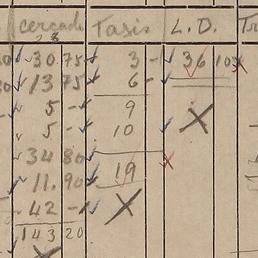 cercado Tasis L.D.
30.75 3 - 36 10
13 75 6 -
5 - 9
5 - 10
34 80
11.90 19
42 -
143 20